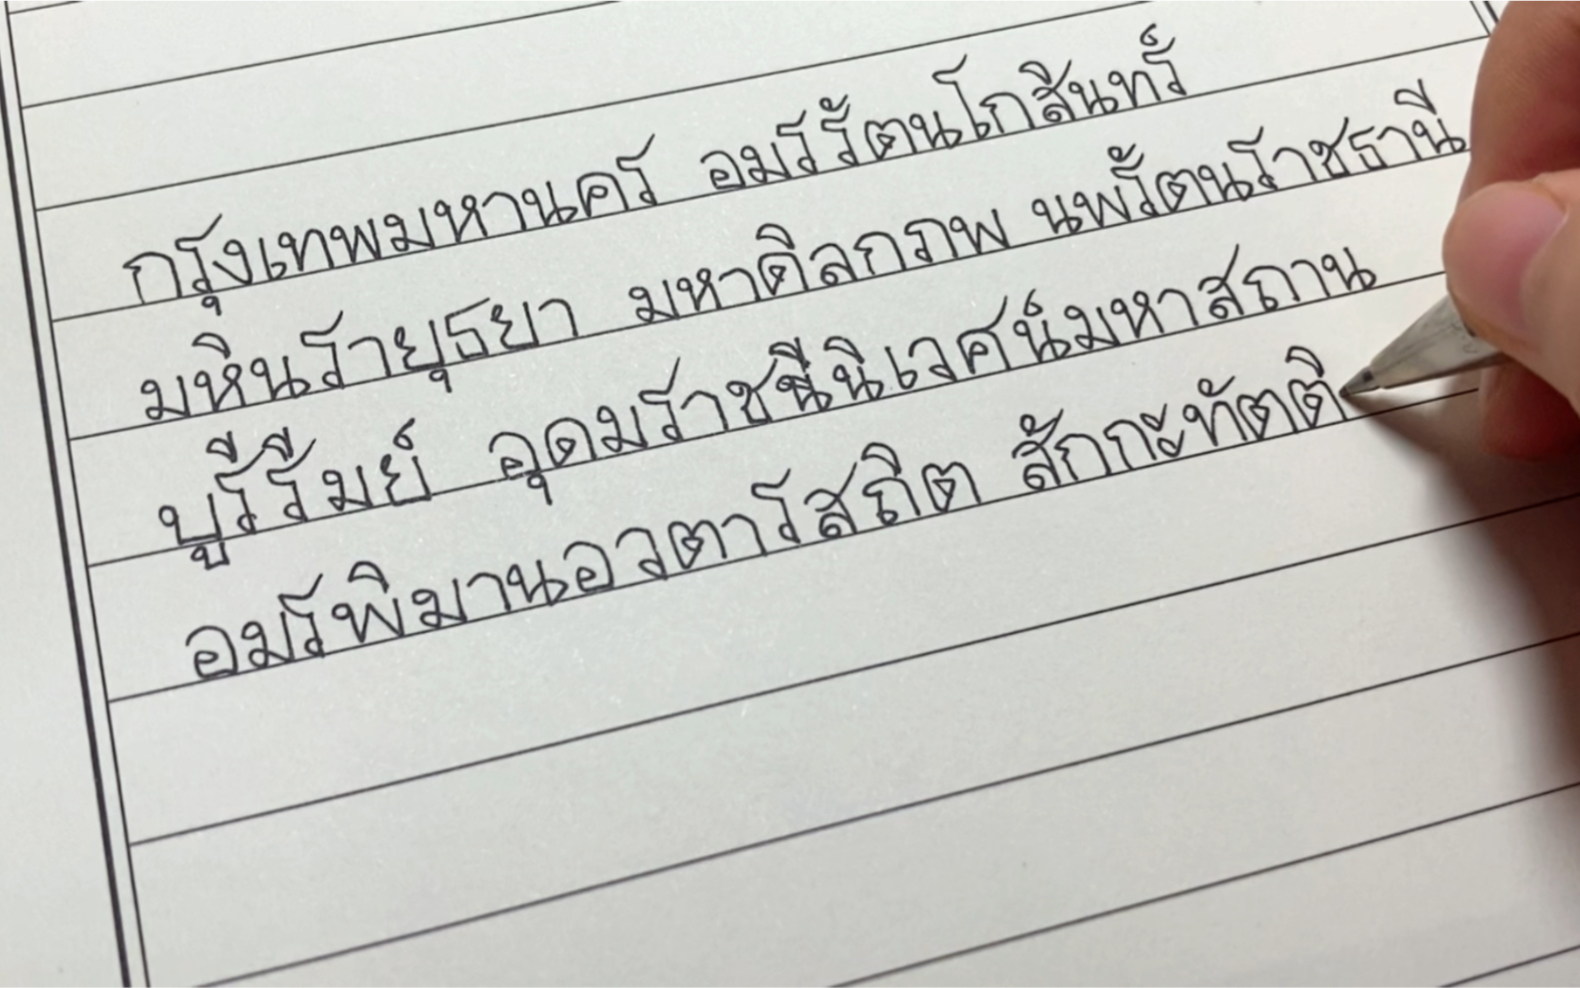 กรุงเทพมหานคร อมรรัตนโกสินทร์
มหินรายุธยา มหาดิลกภพ นพรัตนราชธานี
บูรีรืมย์ อุดมราชนีนิเวศน์มหาสถาน
อมรพิมานอวตารสถิต สักกะทัตติ